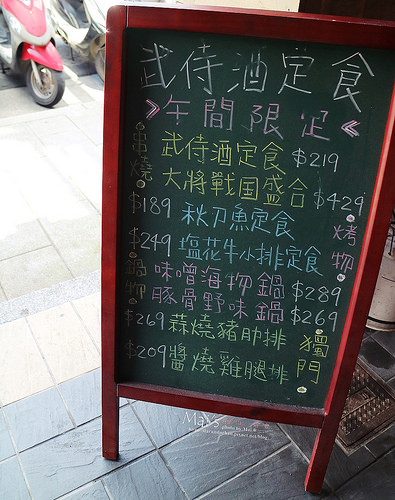 武侍酒定食
午間限定
串燒
武侍酒定食 $219
大將戰国盛合 $429
烤物
$189 秋刀魚定食
$249 塩花牛小排定食
鍋物
味噌海物鍋 $289
豚骨野味鍋 $269
獨門
$269 蒜燒豬肋排
$209 醬燒雞腿排
May's